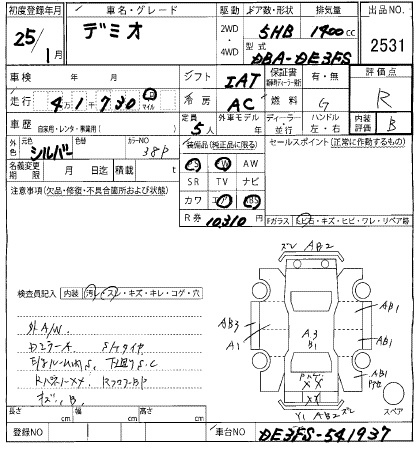 初度登録年月 車名・グレード 駆動 ドア数・形状 排気量 出品NO.
25年 1月 デミオ 2WD ・ 4WD 5HB 1400cc 2531
型式 DBA-DE3FS
車検 年 月 シフト IAT 保証書 有・無 評価点
走行 4万1千730 マイル 冷房 AC 燃料 G R
車歴 自家用・レンタ・事業用( ) 定員 5人 外車モデル 年 ディーラー・並行 ハンドル 左・右 内装評価 B
外色 元色 シルバー 色替 カラーNO 38P 装備品(純正品に限る) セールスポイント(正常に作動するもの)
名義変更期限 月 日迄 積載 t PS PW AW
注意事項(欠品・修復・不具合箇所および状態) SR TV ナビ
カワ エアB ABS
R券 10,310円 Fガラス(ヒビ石・キズ・ヒビ・ワレ・リペア跡
ズレ AB2
検査員記入 内装(汚レ・スレ・キズ・キレ・コゲ・穴
AB3 A3 AB1
A1 B1 AB1
外A/W
S/Hタイヤ
下廻りS.C
キズ、B.
AB1
XX
Y1 AB2 ズレ
スペア
長さ cm 幅 cm 高さ cm
登録NO 車台NO DE3FS-541937